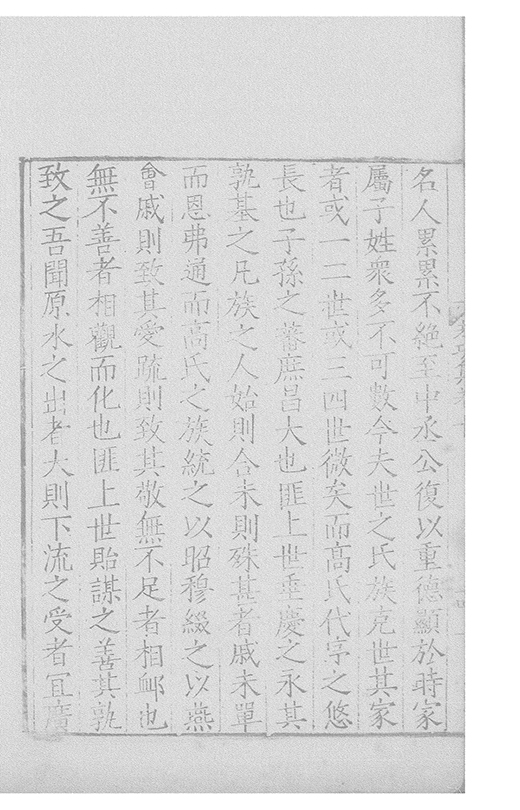 名人累累不絕至中丞公復以重德顯於時家
屬子姓衆多不可數今夫世之氏族克世其家
者或一二世或三四世微矣而高氏代字之悠
長也子孫之蕃庶昌大也匪上世垂慶之永其
孰基之凡族之人始則合末則殊甚者戚未單
而恩弗通而高氏之族統之以昭穆綴之以燕
會戚則致其愛疏則致其敬無不足者相衈也
無不善者相觀而化也匪上世貽謀之善其孰
致之吾聞原水之出者大則下流之受者宜廣